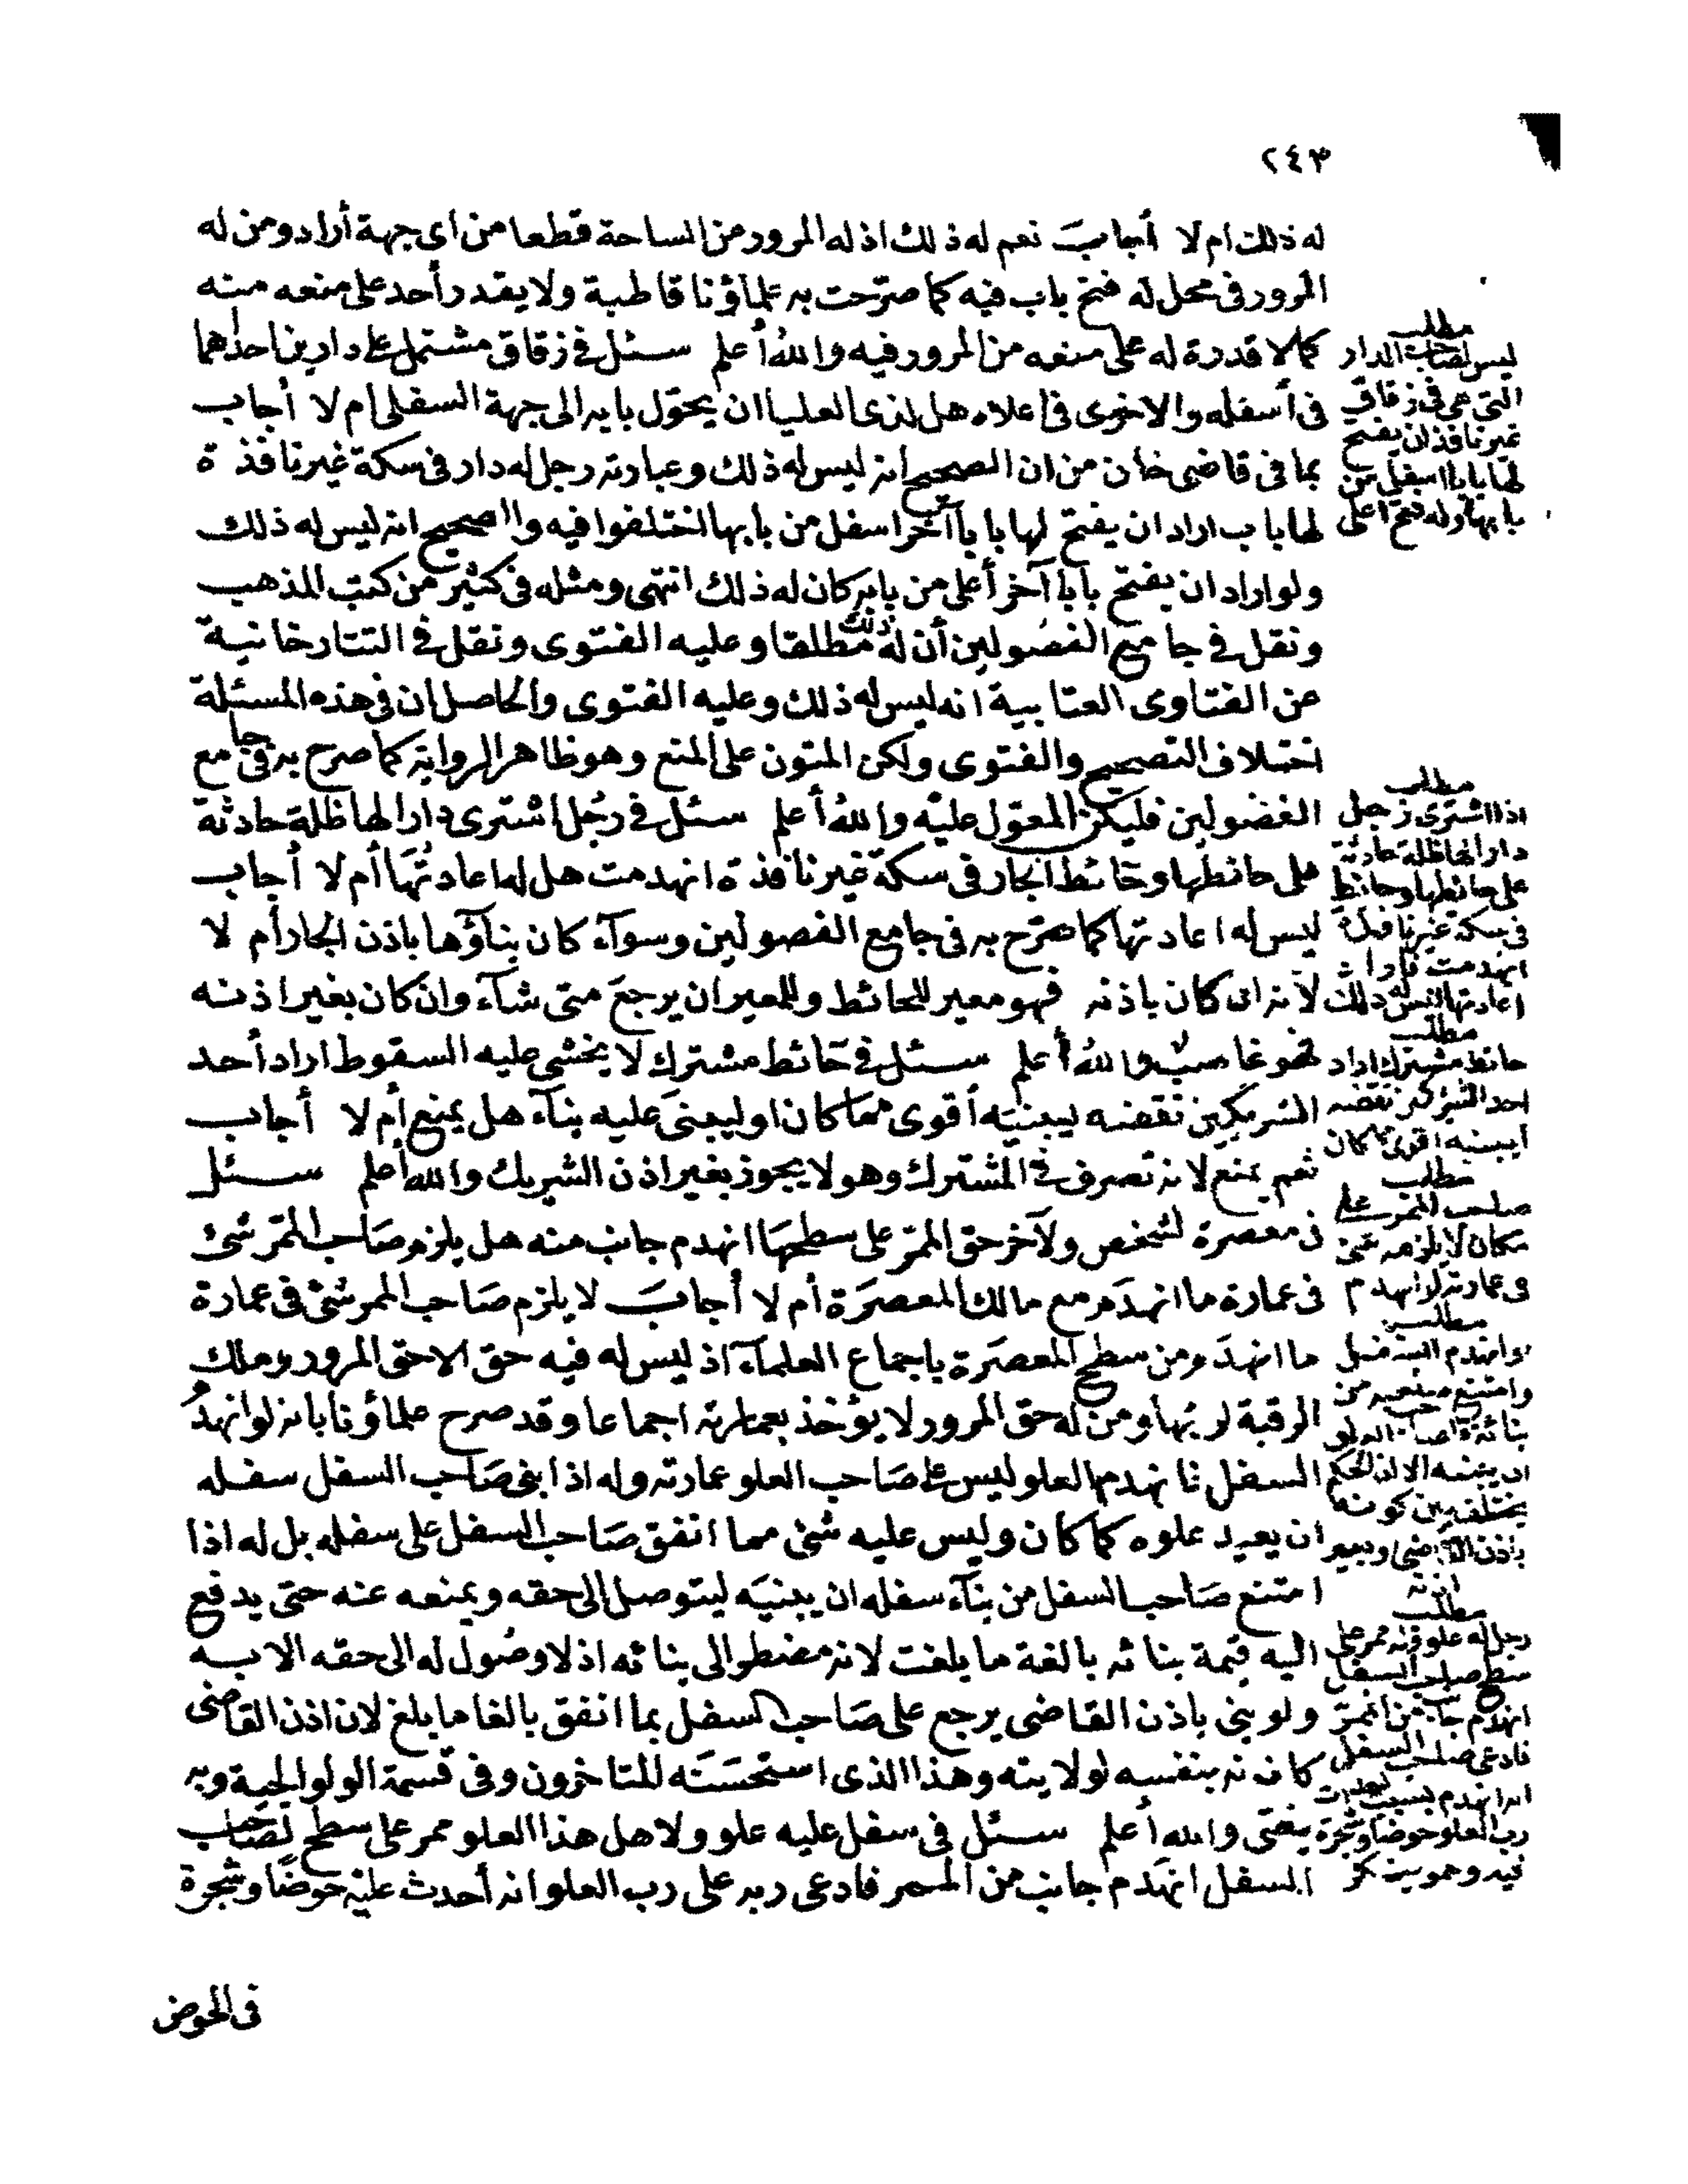 ٢٤٣
له ذلك ام لا أجاب نعم له ذلك اذ له المرور من الساحة قطعا من اى جهة أراد ومن له
المرور فى محل له فتح باب فيه كما صرّحت به علماؤنا قاطبة ولا يقدر أحد على منعه منه
كما لا قدرة له على منعه من المرور فيه والله أعلم سئل فى زقاق مشتمل على دارين احداهما
فى أسفله والاخرى فى اعلاه هل لذى العليا ان يحوّل بابه الى جهة السفلى ام لا أجاب
بما فى قاضى خان من ان الصحيح انه ليس له ذلك وعبارته رجل له دار فى سكة غير نافذة
لها باب اراد ان يفتح لها باباً آخر اسفل من بابها اختلفوا فيه والصحيح انه ليس له ذلك
ولو اراد ان يفتح بابا آخر أعلى من بابه كان له ذلك انتهى ومثله فى كثير من كتب المذهب
ونقل فى جامع الفصولين أن له ذلك مطلقا وعليه الفتوى ونقل فى التتارخانية
عن الفتاوى العتابية انه ليس له ذلك وعليه الفتوى والحاصل ان فى هذه المسئلة
اختلاف التصحيح والفتوى ولكن المتون على المنع وهو ظاهر الرواية كما صرح به فى جامع
الفصولين فليكن المعوّل عليه والله أعلم سئل فى رجُل اشترى دارا لها ظلة حادثة
على حائطها وحائط الجار فى سكة غير نافذة انهدمت هل له اعادتُها أم لا أجاب
ليس له اعادتها كما صرّح به فى جامع الفصولين وسوآء كان بنآؤها باذن الجار أم لا
لانه ان كان باذنه فهو معير للحائط وللمعير ان يرجع متى شآء وان كان بغير اذنه
فهو غاصب والله أعلم سئل فى حائط مشترك لا يخشى عليه السقوط اراد أحد
الشريكين نقضه ليبنيَه أقوى مما كان او ليبنى عليه بنآء هل يمنع أم لا أجاب
نعم يمنع لانه تصرف فى المشترك وهو لا يجوز بغير اذن الشريك والله أعلم سئل
فى معصرة لشخص ولآخر حق الممر على سطحها انهدم جانب منه هل يلزم صاحب الممر شئ
فى عمارة ما انهدم مع مالك المعصرة أم لا أجاب لا يلزم صاحب الممر شئ فى عمارة
ما انهدم من سطح المعصرة باجماع العلمآء اذ ليس له فيه حق الا حق المرور وملك
الرقبة لربّها ومن له حق المرور لا يؤخذ بعمارته اجماعا وقد صرح علماؤنا بانه لو انهدم
السفل فانهدم العلو ليس على صاحب العلو عمارته وله اذا بنى صاحب السفل سفله
ان يعيد علوه كما كان وليس عليه شئ مما انفق صاحب السفل على سفله بل له اذا
امتنع صاحب السفل من بنآء سفله ان يبنيَه ليتوصل الى حقه ويمنعه عنه حتى يدفع
اليه قيمة بنائه بالغة ما بلغت لانه مضطر الى بنائه اذ لا وصُول له الى حقه الا به
ولو بنى باذن القاضى يرجع على صاحب السفل بما انفق بالغا ما بلغ لان اذن القاضى
كاذنه بنفسه لولايته وهذا الذى استحسنَه المتاخرون وفى قسمة الولوالجية وبه
يفتى والله أعلم سئل فى سفل عليه علو ولاهل هذا العلو ممر على سطح لصاحب
السفل انهدم جانب من الممر فادعى ربه على رب العلو انه أحدث عليه حوضًا وشجرة
فى الحوض
مطلب
ليس لصاحب الدار
التى هى فى زقاق
غير نافذ ان يفتح
لها بابا اسفل من
بابها وله فتح اعلى
مطلب
اذا اشترى رجل
دارا لها ظلة حادثة
على حائطها وحائط
فى سكة غير نافذة
انهدمت فاراد
اعادتها ليس له ذلك
مطلب
حائط مشترك اراد
احد الشركين نقضه
ليبنيه اقوى مما كان
مطلب
صاحب الممر على
مكان لا يلزمه شئ
فى عمارته لو انهدم
مطلب
لو انهدم السفل
وامتنع صاحبه من
بنائه فلصاحب العلو
ان يبنيه الا ان الحكم
يختلف بين كونه
باذن القاضى وبغير
اذنه
مطلب
رجل له علو وله ممر على
سطح صاحب السفل
انهدم جانب من الممر
فادعى صاحب السفل
انه انهدم بسبب احداث
رب العلو حوضا وشجرة
فيه وهو ينكر